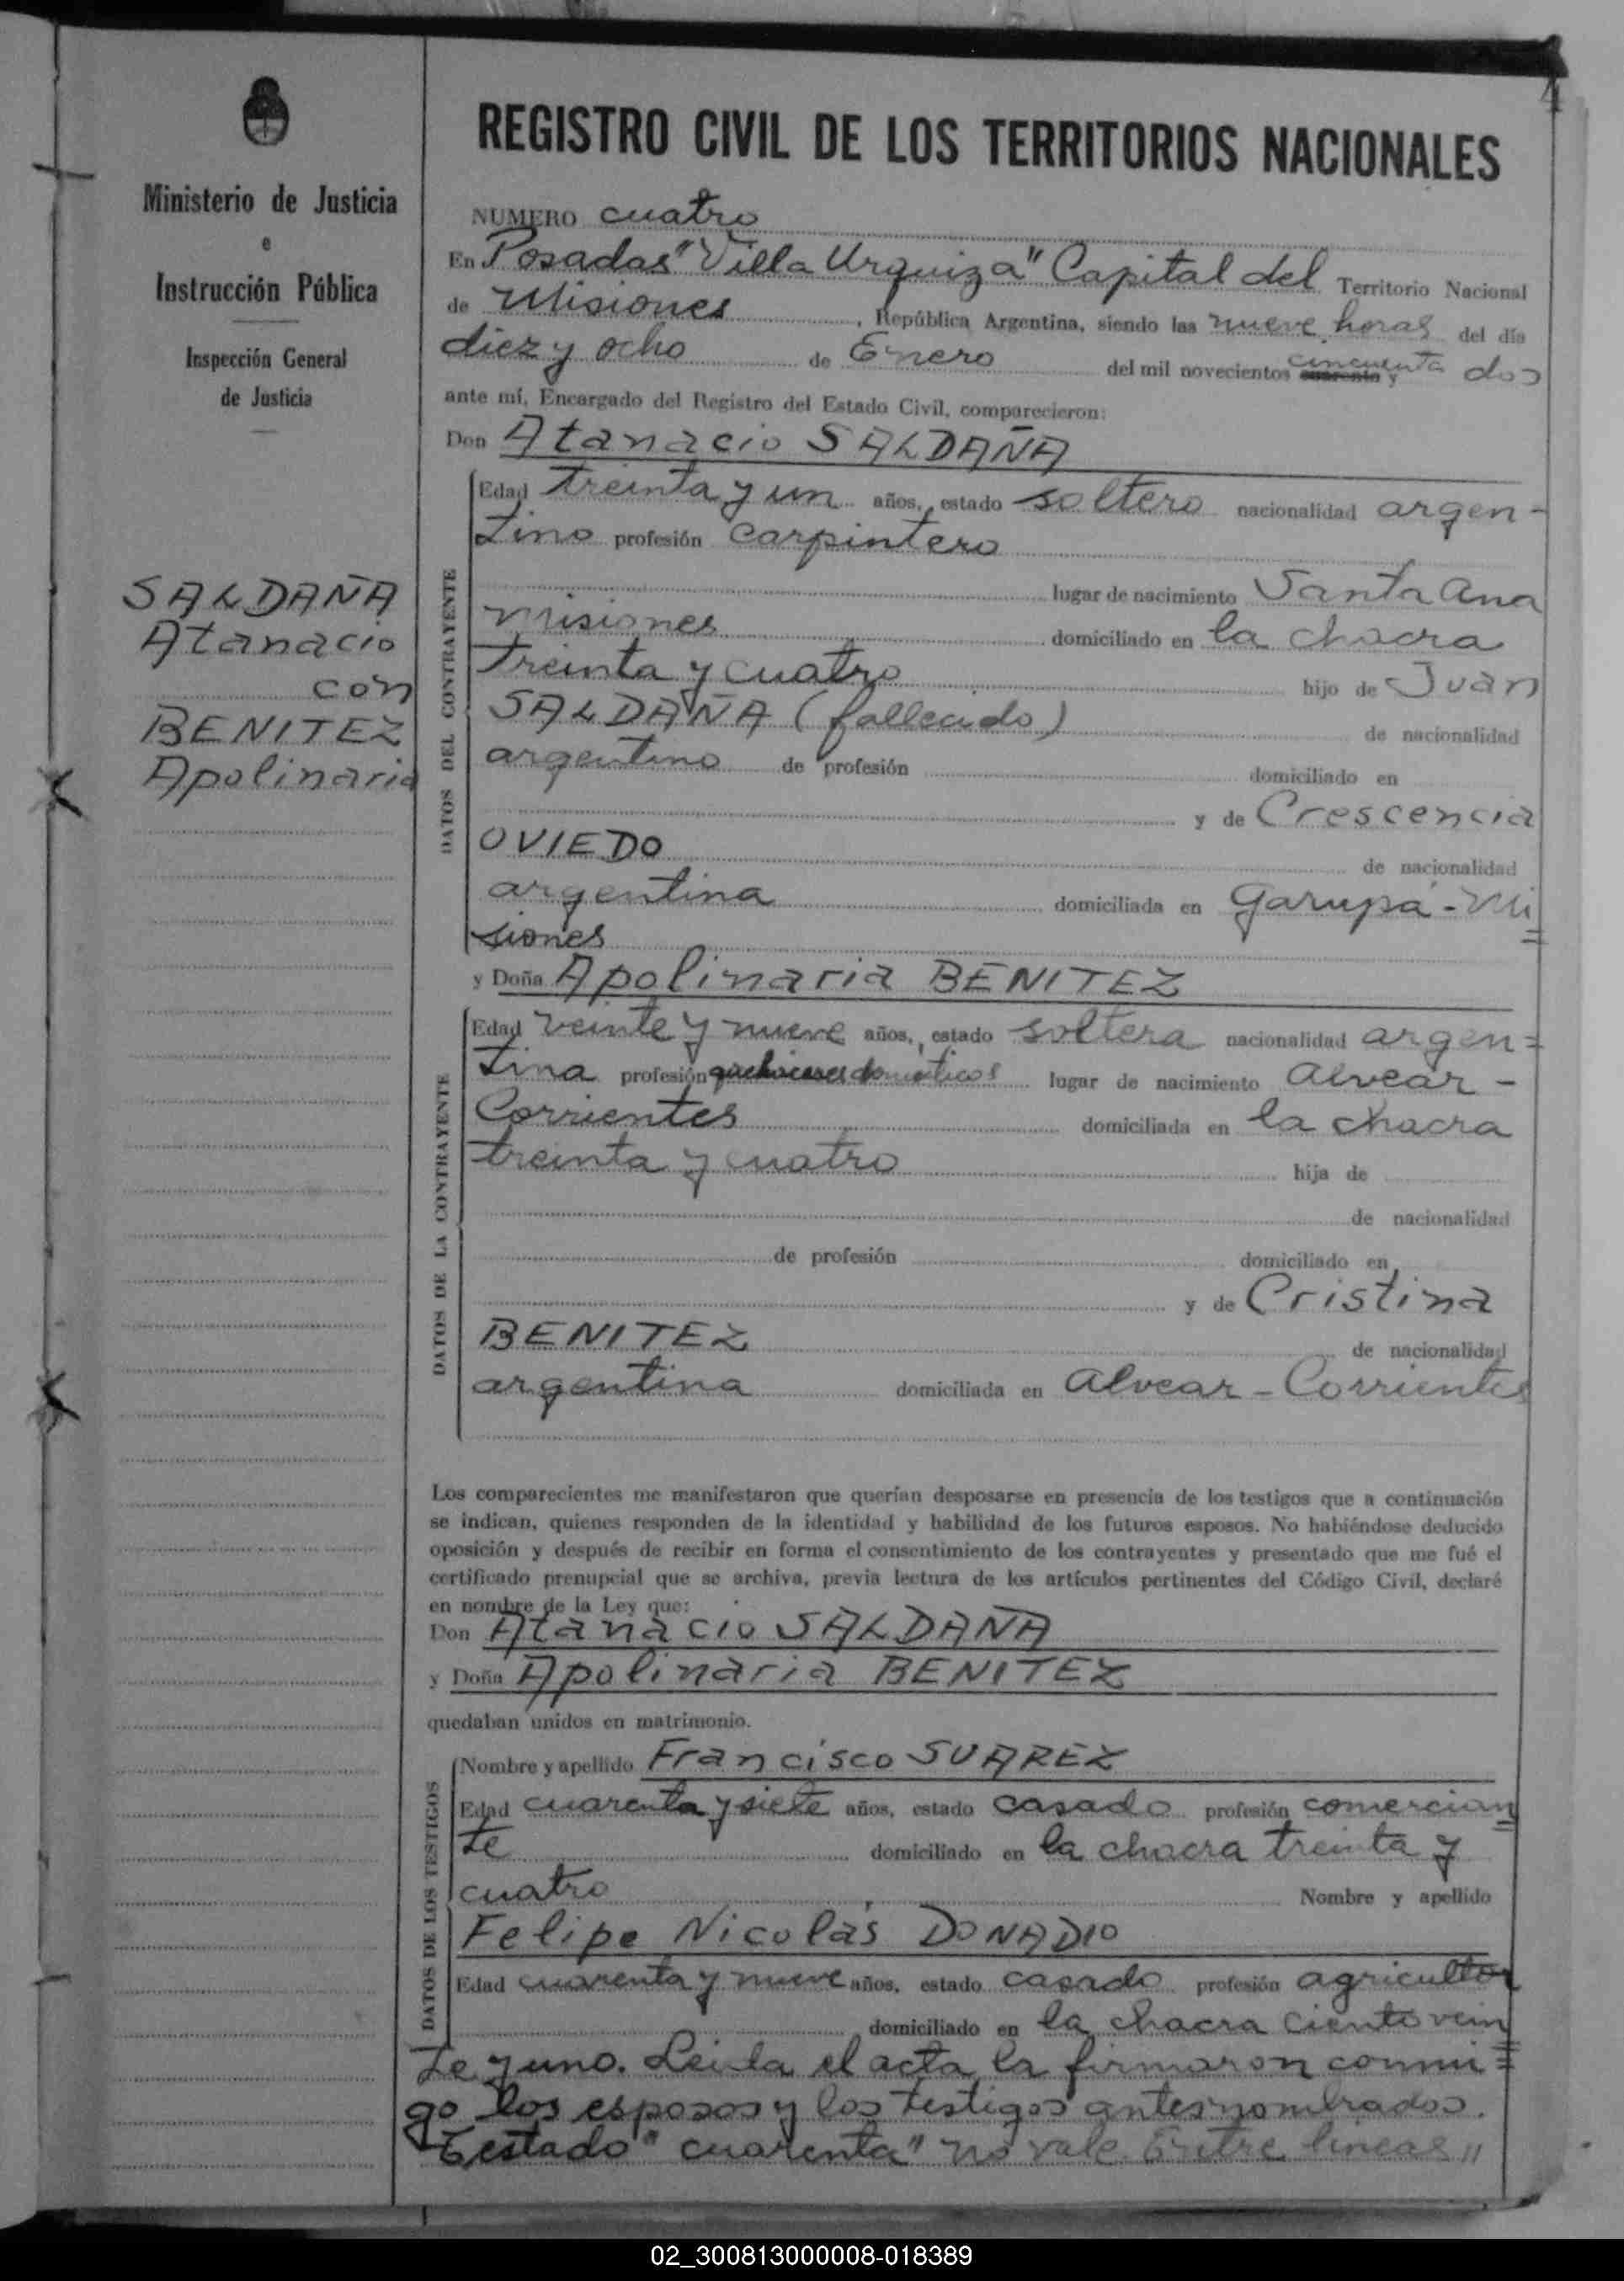 4
Ministerio de Justicia
e
Instrucción Pública
Inspección General
de Justicia
SALDAÑA
Atanacio
con
BENITEZ
Apolinaria
REGISTRO CIVIL DE LOS TERRITORIOS NACIONALES
NUMERO cuatro
En Posadas "Villa Urquiza" Capital del Territorio Nacional
de Misiones, República Argentina, siendo las nueve horas del día
diez y ocho de Enero del mil novecientos cuarenta y cincuenta dos
ante mí, Encargado del Registro del Estado Civil, comparecieron:
Don Atanacio SALDAÑA
DATOS DEL CONTRAYENTE
Edad treinta y un años, estado soltero nacionalidad argen-
tino profesión carpintero
lugar de nacimiento Santa Ana
Misiones domiciliado en la chacra
treinta y cuatro hijo de Juan
SALDAÑA (fallecido) de nacionalidad
argentino de profesión domiciliado en
y de Crescencia
OVIEDO de nacionalidad
argentina domiciliada en Garupá - Mi=
siones
y Doña Apolinaria BENITEZ
DATOS DE LA CONTRAYENTE
Edad veinte y nueve años, estado soltera nacionalidad argen=
tina profesión quehaceres domésticos lugar de nacimiento Alvear -
Corrientes domiciliada en la chacra
treinta y cuatro hija de
de nacionalidad
de profesión domiciliado en
y de Cristina
BENITEZ de nacionalidad
argentina domiciliada en Alvear - Corrientes
Los comparecientes me manifestaron que querían desposarse en presencia de los testigos que a continuación
se indican, quienes responden de la identidad y habilidad de los futuros esposos. No habiéndose deducido
oposición y después de recibir en forma el consentimiento de los contrayentes y presentado que me fué el
certificado prenupcial que se archiva, previa lectura de los artículos pertinentes del Código Civil, declaré
en nombre de la Ley que:
Don Atanacio SALDAÑA
y Doña Apolinaria BENITEZ
quedaban unidos en matrimonio.
DATOS DE LOS TESTIGOS
Nombre y apellido Francisco SUAREZ
Edad cuarenta y siete años, estado casado profesión comercian=
te domiciliado en la chacra treinta y
cuatro Nombre y apellido
Felipe Nicolás DONADIO
Edad cuarenta y nueve años, estado casado profesión agricultor
domiciliado en la chacra ciento vein=
te y uno. Leida el acta la firmaron conmi=
go los esposos y los testigos antes nombrados.
Testado "cuarenta" no vale. Entre lineas "
02_300813000008-018389